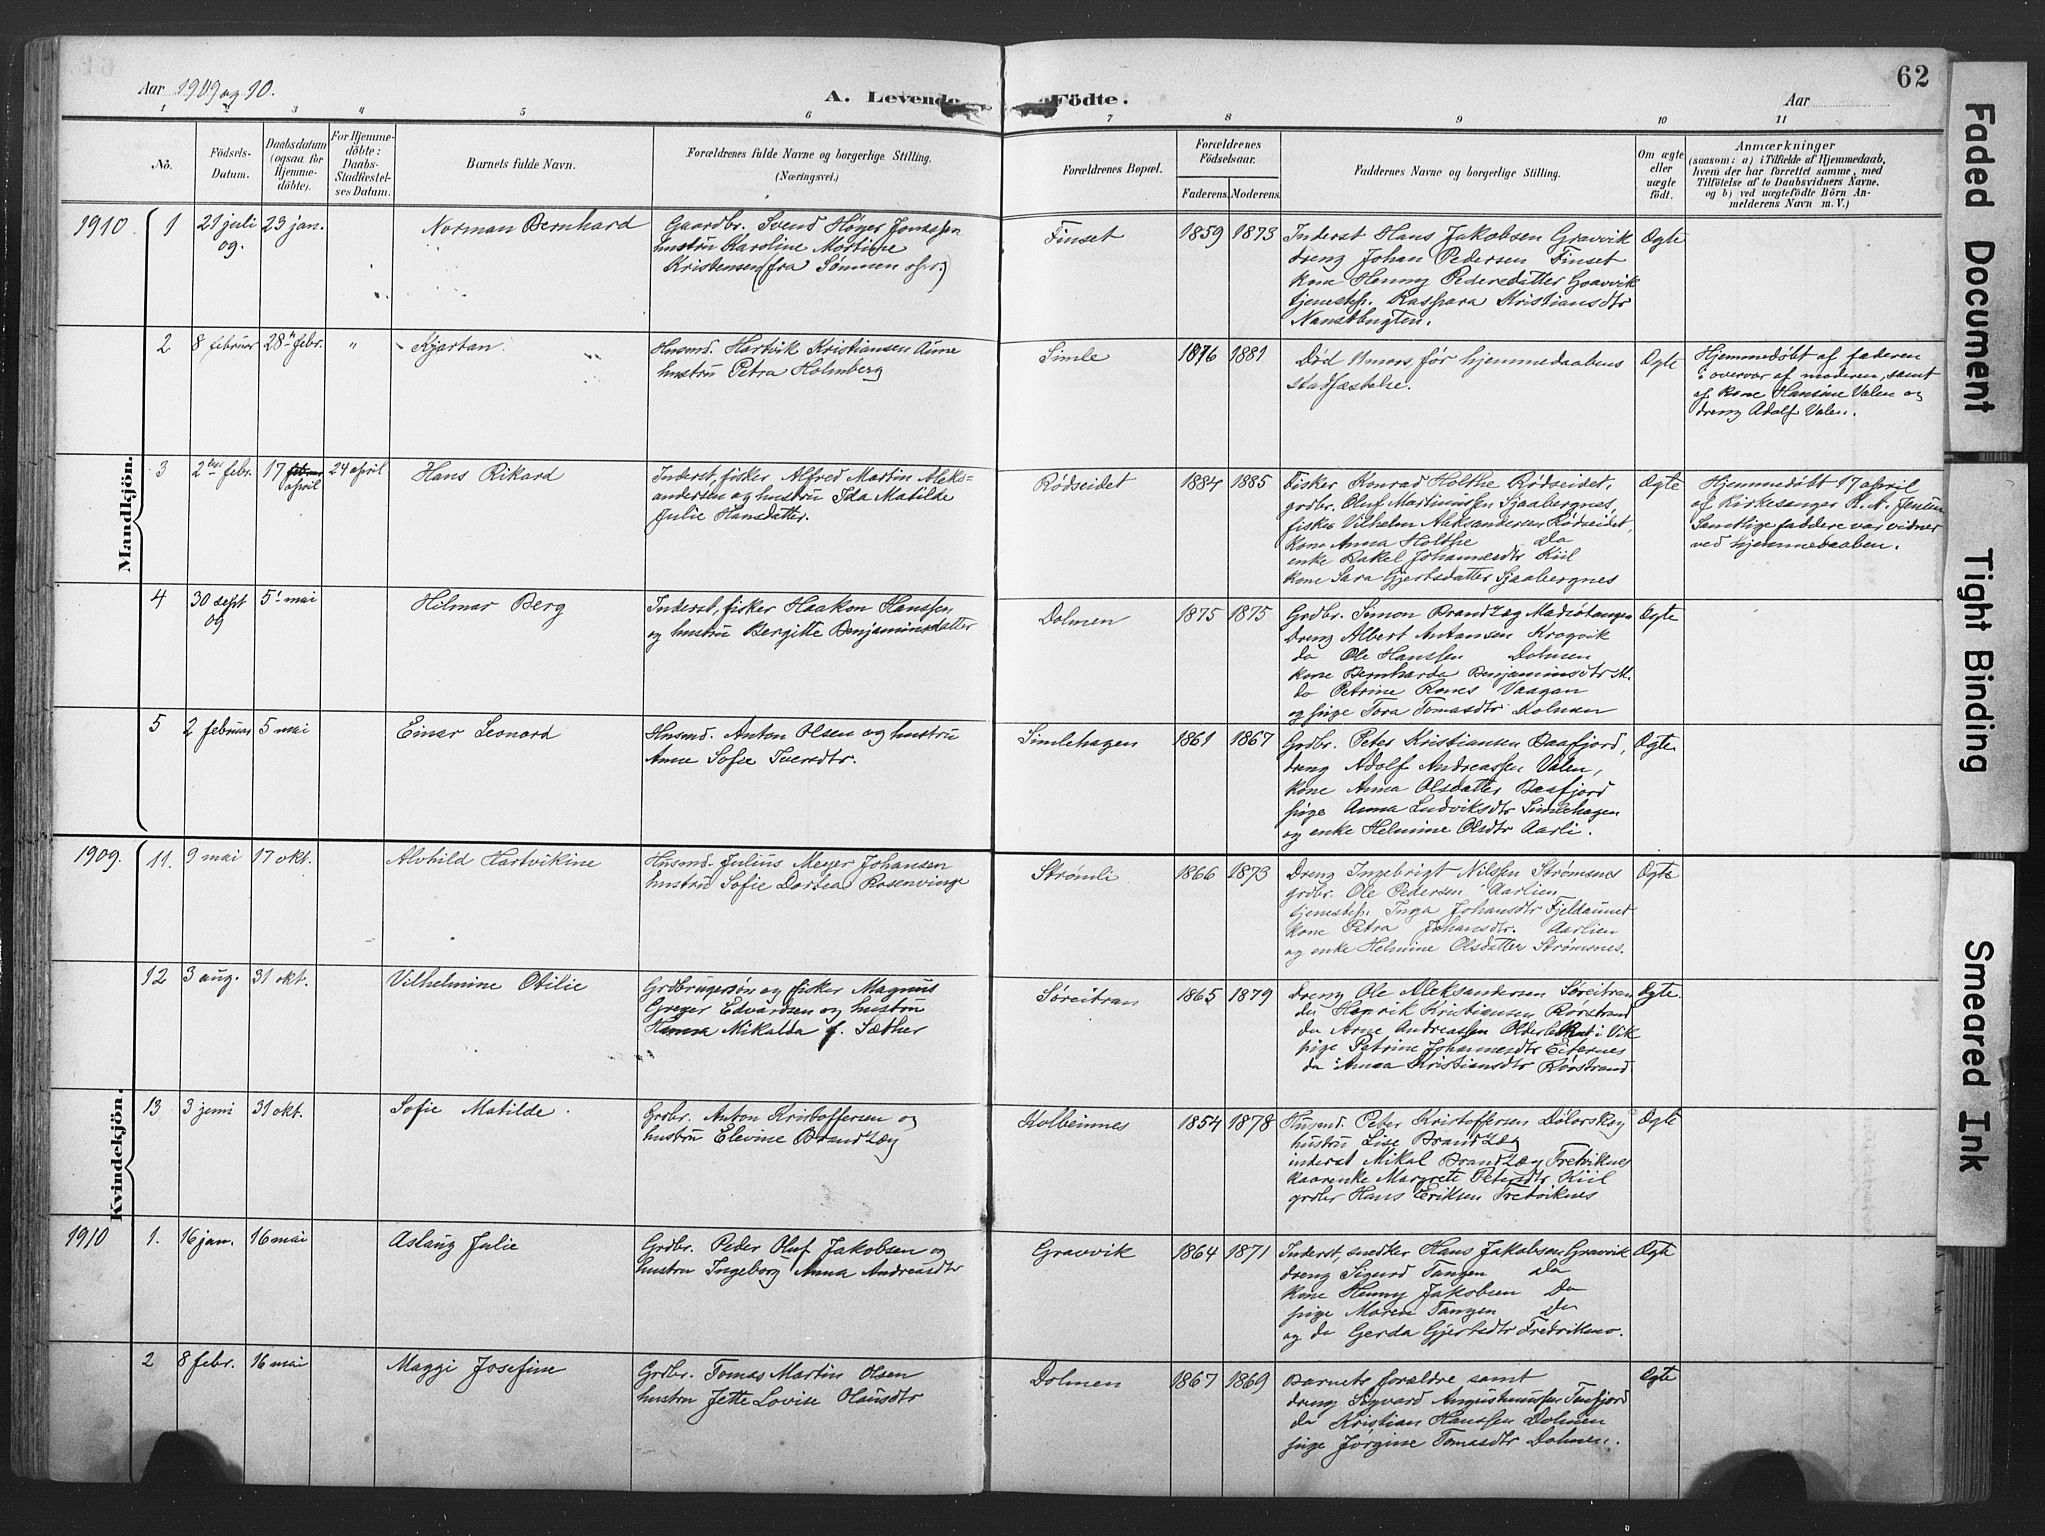 62
Aar 1909 og 10.
A. Levende Födte.
Aar
1 2 3 4 5 6 7 8 9 10 11
No.
Födsels-
Datum.
Daabsdatum
(ogsaa for
Hjemme-
döbte).
For Hjemme-
döbte:
Daabs-
Stadfæstel-
ses Datum.
Barnets fulde Navn.
Forældrenes fulde Navne og borgerlige Stilling.
(Næringsvei.)
Forældrenes Bopæl.
Forældrenes
Födselsaar.
Faderens. Moderens.
Faddernes Navne og borgerlige Stilling.
Om ægte
eller
uægte
födt.
Anmærkninger
(saasom: a) i Tilfælde af Hjemmedaab,
hvem der har forrettet samme, med
Tilföielse af to Daabsvidners Navne,
og b) ved uægtefödte Börn An-
melderens Navn m. V.)
Mandkjön.
1910 1 21 juli 09. 23 jan. " Norman Bernhard
Gaardbr. Svend Høyer Jonassen
hustru Karoline Mortine
Kristensen (fra Sømnen opr.)
Finset 1859 1873
Inderst Hans Jakobsen Gravvik
dreng Johan Pedersen Finset
kone Henny Pedersdatter Gravvik
tjenestep. Kaspara Kristiansdtr
Ægte
2 8 februar 28 febr. " Kjartan
Husmd. Hartvik Kristiansen Aune
hustru Petra Holmberg
Simle 1876 1881
Død før hjemmedaabens
stadfæstelse.
Ægte
Hjemmedøbt af faderen
i overvær af moderen, samt
af kone Hansine Valen og
dreng Adolf Valen.
3 2den febr. 17 april 24 april Hans Rikard
Inderst, fisker Alfred Martin Aleks-
andersen og hustru Ida Matilde
Julie Hansdatter.
Rødseidet 1884 1885
Fisker Konrad Holthe Rødseidet,
grdbr. Oluf Martinussen Sjaabergnes,
fisker Vilhelm Aleksandersen Rødseidet,
kone Anna Holthe Do
enke Rakel Johannesdtr Kiil
kone Sara Gjertsdatter Sjaabergnes
Ægte
Hjemmedøbt 17 april
af kirkesanger R. A. Jensen
Samtlige faddere var vidner
ved hjemmedaaben.
4 30 sept 09 5 mai Hilmar Berg
Inderst, fisker Haakon Hanssen
og hustru Bergitte Benjaminsdatter
Dolmen 1875 1875
Grdbr. Simon Brandzæg
Dreng Albert Antonsen Krogvik
do Ole Hanssen Dolmen
kone Bernharde Benjaminsdtr
do Petrine Vaagan
og pige Tora Tomasdtr Dolmen
Ægte
5 2 februar 5 mai Einar Leonard
Husmd. Anton Olsen og hustru
Anne Sofie Iversdtr.
Simlehagen 1861 1867
Grdbr. Peter Kristiansen Baafjord,
dreng Adolf Andreassen Valen,
kone Anna Olsdatter Baafjord
pige Anna Ludviksdtr Simlehagen
og enke Helmine Olsdtr Aarli.
Ægte
Kvindekjön.
1909. 11. 9 mai 17 okt. Alvhild Hartvikine
Husmd. Julius Meyer Johansen
hustru Sofie Dortea Rosenvinge
Strømli 1866 1873
Dreng Ingebrigt Nilssen Strømsnes
grdbr. Ole Pedersen Aarlien
tjenestep. Inga Johansdtr Fjeldaunet
kone Petra Johansdtr. Aarlien
og enke Helmine Olsdatter Strømsnes.
Ægte
12 3 aug. 31 okt. Vilhelmine Otilie
Grdbrugersøn og fisker Magnus
Greger Edvardsen og hustru
Hanna Mikalda f. Sæther
Søreitran 1865 1879
Dreng Ole Aleksandersen Søreitran
do Henrik Kristiansen Rørstrand
do Arne Andreassen i Vik
pige Petrine Johannesdtr Eiternes
do Anna Kristiansdtr Rørstrand
Ægte
13 3 juni 31 okt. Sofie Matilde.
Grdbr. Anton Kristoffersen og
hustru Elevine Brandzæg
Kolbeinnes 1854 1878
Husmd. Peter Kristoffersen
hustru Lise Brandzæg
inderst Mikal Brandzæg Fretviknes
kaarenke Margrete Petersdtr Kiil
grdbr Hans Eriksen Fretviknes
Ægte
1910 1. 16 jan. 16 mai Aslaug Julie
Grdbr. Peder Oluf Jakobsen og
hustru Ingeborg Anna Andreasdtr
Gravvik 1864 1871
Inderst, snedker Hans Jakobsen Gravvik
dreng Sigurd Tangen do
kone Henny Jakobsen Do
pige Maren Tangen Do
og do Gerda Gjertsdtr
Ægte
2 8 febr. 16 mai Maggi Josefine
Grdbr. Tomas Martin Olsen
hustru Jette Lovise Olausdtr
Dolmen 1867 1869
Barnets forældre samt
dreng Sigvard Augustinussen
do Kristian Hanssen Dolmen
pige Jørgine Tomasdtr Dolmen.
Ægte
Faded Document
Tight Binding
Smeared Ink